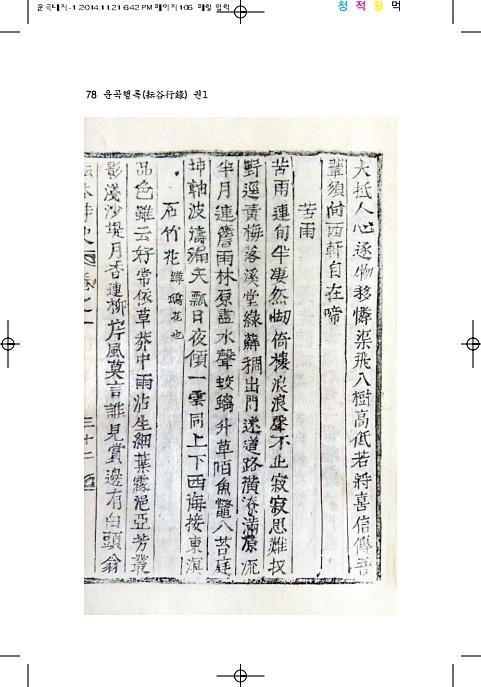 운곡대지-1 2014.11.21 6:42 PM 페이지106 매킬 입력
청 적 황 먹
78 운곡행록(耘谷行錄) 권1
大抵人心逐物移憐渠飛入樹高低若將喜信傳吾
輩須向西軒自在啼
苦雨
苦雨連旬半凄然㘭倚樓浪浪聲不止寂寂思難收
野逕黃梅落溪堂綠蘚稠出門迷道路潢潦滿原流
半月連簷雨林原盡水聲蛟螭升草陌魚鼈入苔庭
坤軸波濤漏天瓢日夜傾一雲同上下西海接東溟
石竹花
品色雖云好常依草莽中雨沾生細葉露浥亞芳叢
影淺沙堤月香連柳岸風莫言誰見賞邊有白頭翁
卷之一 三十二